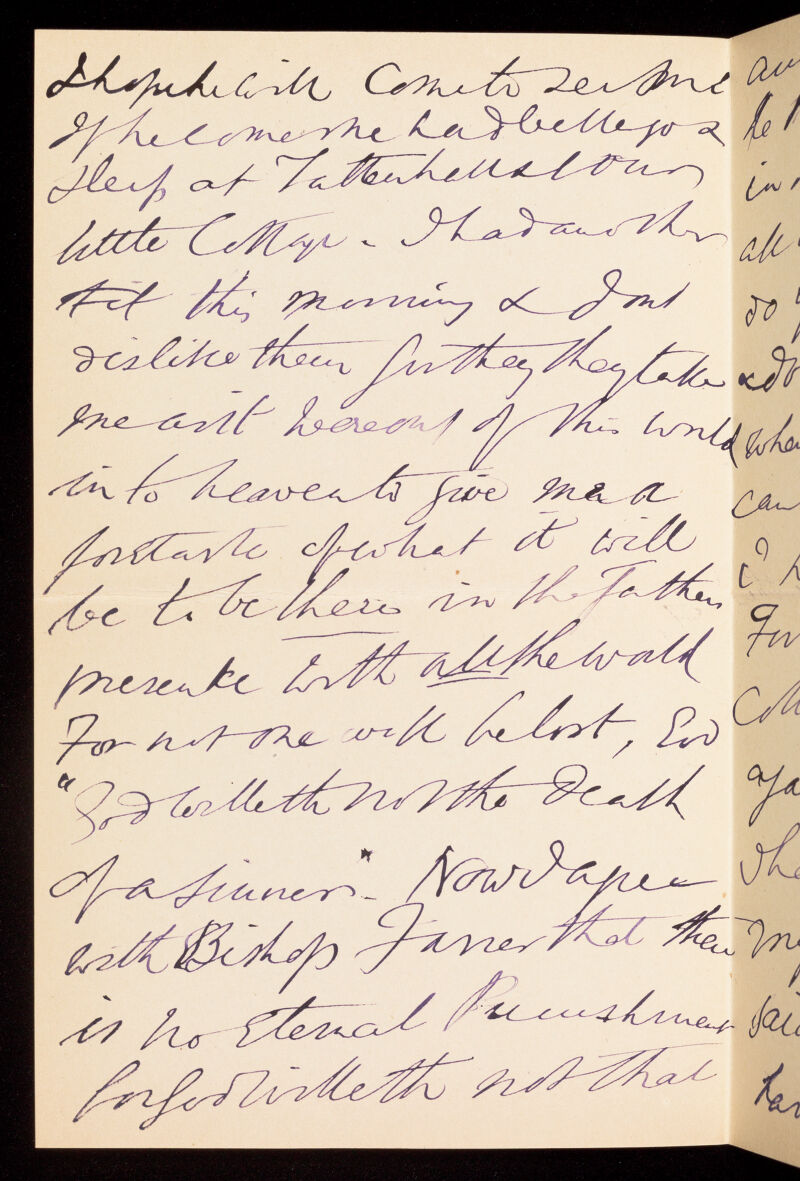 I hope he will Come to see me
If he comes he had better go &
sleep at Tattenhalls Our
little Cottage - I had another
Fit this morning & I dont
dislike them for they they take
me out of this world
in to heaven to give me a
foretaste of what it will
be to be there in the Fathers
presence with all the world
For not one will be lost, For
"God willeth not the Death
of a Sinner". Now I agree
with Bishop Farrer that there
is no Eternal Punishment
for God willeth not that
he
in
all
do
& do
when
can
For
my
said